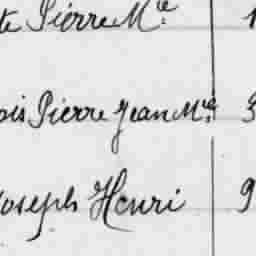 te Pierre Mie 1
ois Pierre Jean Mie 3
Joseph Henri 9